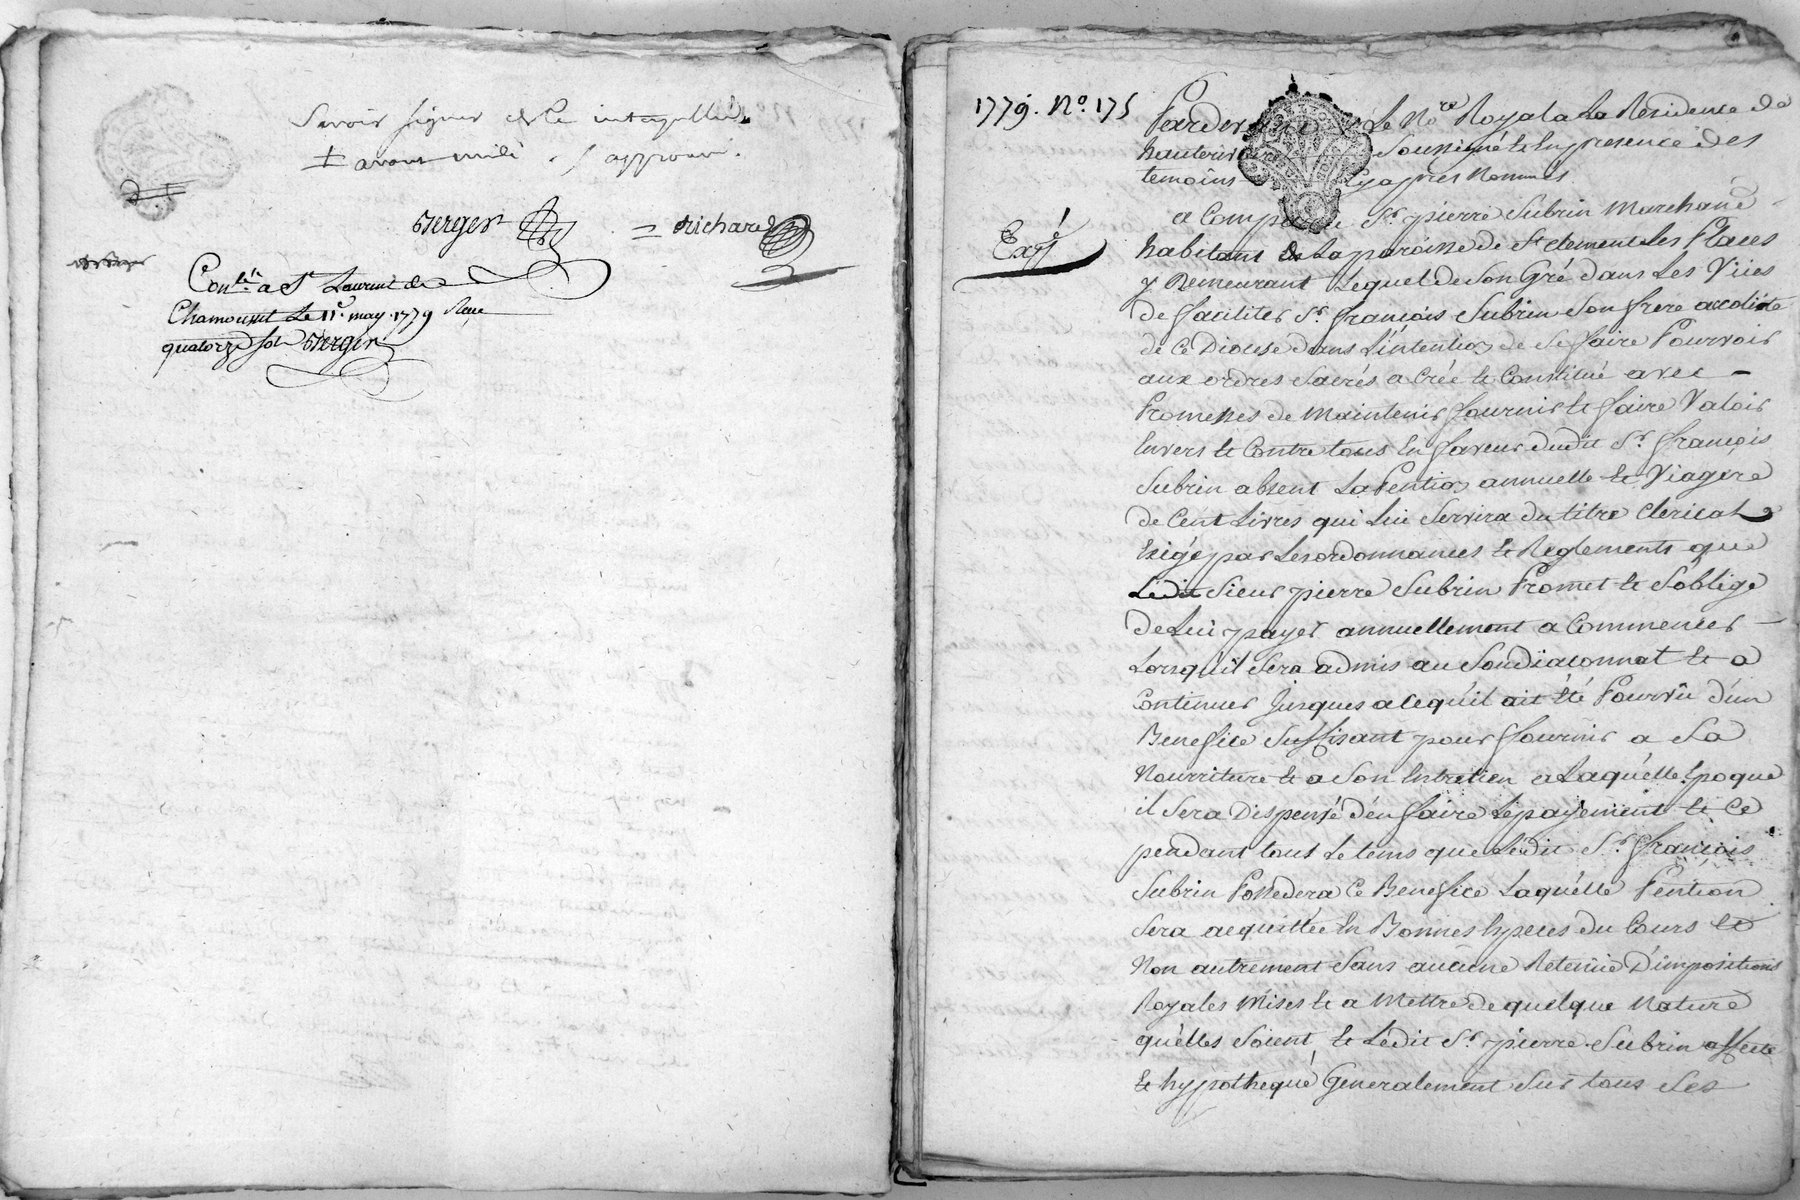 Savoir signer de ce interpellé.
+ avant midi / approuvé.
Verger = Richard
Conlé a St Laurent de
Chamousset Le 11e may 1779 Reçu
quatorze sols Verger
1779. No. 175
Expé
Pardevant Le Nore Royal a La Residence de
hauterivoire Soussigné et En presence des
temoins Cy apres Nommés
a Comparu Sr. pierre Subrin Marchand
habitant de La paroisse de St Clement les Places
y Demeurant Lequel de Son Gré dans Les Vües
de faciliter Sr. françois Subrin Son frere accolitte
de Ce Diocese dans L'intention de Se faire Pourvoir
aux ordres Sacrés a Créé et Constitué avec
Promesses de Maintenir fournir et faire Valoir
Envers et Contre tous En faveur dudit Sr. françois
Subrin absent La Pention annuelle et Viagere
de Cent Livres qui Lui Servira du titre Clerical
Exigé par Les ordonnances et Reglements que
Ledit Sieur pierre Subrin Promet et S'oblige
de Lui payer annuellement a Commencer
Lorsqu'il Sera admis au Soudiaconnat et a
Continuer Jusques a lequ'il ait été Pourvû d'un
Benefice Suffisant pour fournir a Sa
Nourriture et a Son Entretien a Laquelle Epoque
il Sera Dispensé d'en faire Le payement et Ce
pendant tout Le tems que Ledit Sr. françois
Subrin Possedera Ce Benefice Laquelle Pention
Sera acquittée En Bonnes Especes du Cours et
Non autrement Sans aucune Retenüe D'impositions
Royales Mises et a Mettre de quelque Nature
qu'elles Soient, et Ledit Sr. pierre Subrin affecte
et hypotheque Generalement Sur tous Ses